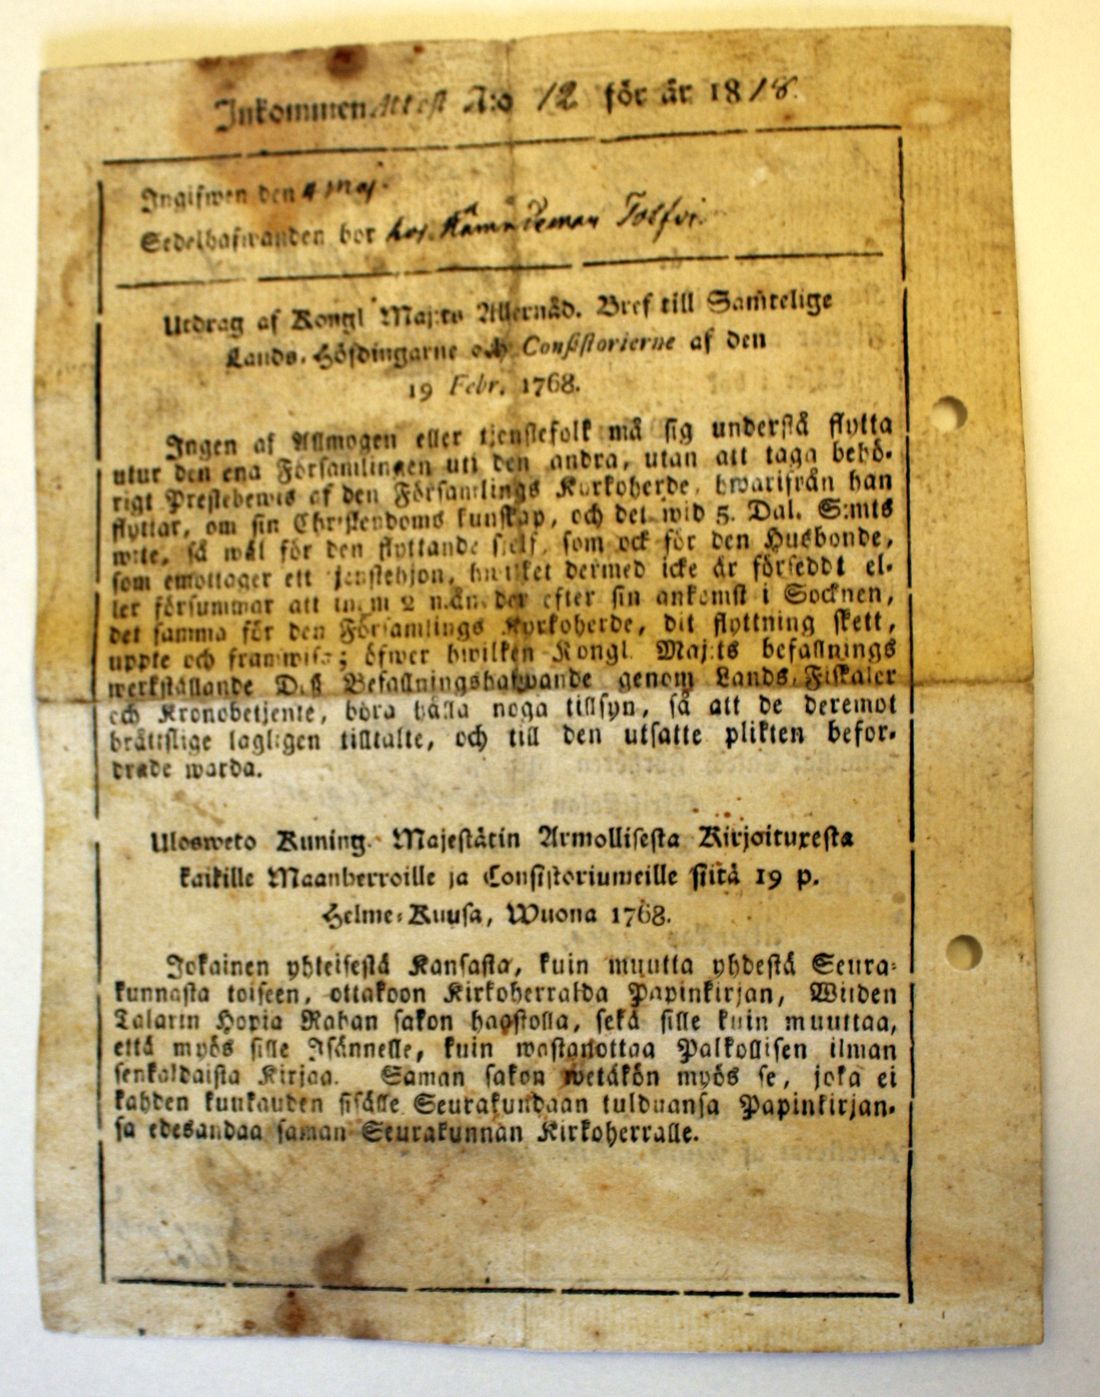 Inkommen Attest N:o 12 för år 1818.
Ingifwen den 4 Maj.
Sedelhafwanden bor hos
Utdrag af Kongl Maj:ts Allernåd. Bref till Samtelige
Lands-Höfdingarne och Consistorierne af den
19 Febr. 1768.
Ingen af Allmogen eller tjenstefolk må sig understå flytta
utur den ena Församlingen uti den andra, utan att taga behö-
rigt Prestebewis af den Församlings Kyrkoherde, hwarifrån han
flyttar, om sin Christendoms kunskap, och det wid 5. Dal. S:mts
wite, så wäl för den flyttande sielf, som ock för den Husbonde,
som emottager ett tjenstehjon, hwilket dermed icke är försedt el-
ler försummar att inom 2 mån. der efter sin ankomst i Socknen,
det samma för den Församlings Kyrkoherde, dit flyttning skett,
uppte och framwisa; öfwer hwilken Kongl. Maj:ts befallnings
werkställande Des Befallningshafwande genom Lands-Fiskaler
och Kronobetjente, böra hålla noga tillsyn, så att de deremot
bråttslige lagligen tilltalte, och till den utsatte plikten befor-
drade warda.
Ulosweto Kuning. Majestätin Armollisesta Kirjoituxesta
kaikille Maanherroille ja Consistoriumeille siitä 19 p.
Helme-Kuusa, Wuona 1768.
Jokainen yhteisestä Kansasta, kuin muutta yhdestä Seura-
kunnasta toiseen, ottakoon Kirkoherralda Papinkirjan, Wiiden
Talarin Hopia Rahan sakon haastolla, sekä sille kuin muuttaa,
että myös sille Isännelle, kuin wastanottaa Palkollisen ilman
senkaldaista Kirjaa. Saman sakon wetäkön myös se, joka ei
kahden kuukauden sisälle Seurakundaan tulduansa Papinkirjan-
sa edesandaa saman Seurakunnan Kirkoherralle.